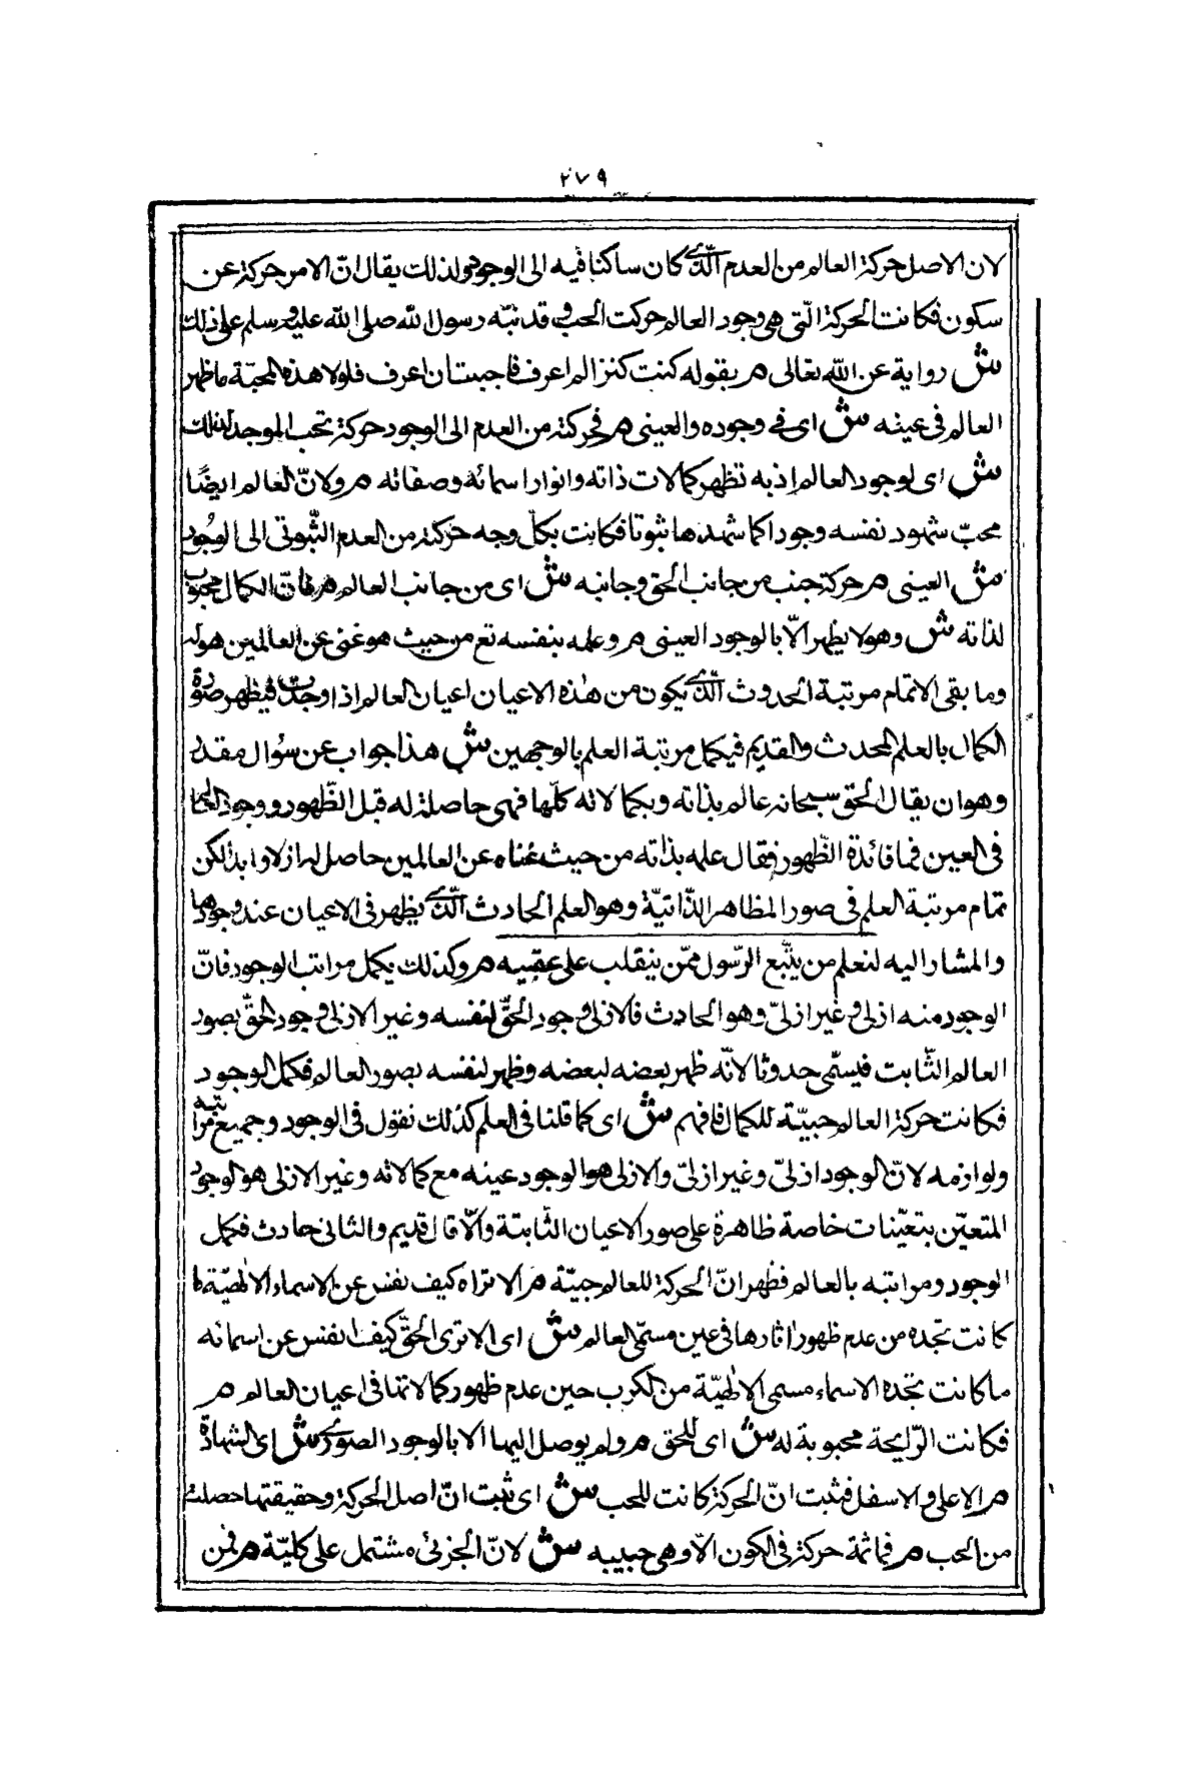 ٢٧٩
لان الاصل حركة العالم من العدم الّذى كان ساكنا فيه الى الوجود ولذلك يقال انّ الامر حركة عن
سكون فكانت الحركة الّتى هى وجود العالم حركت الحب و قد نبّه رسول الله صلى الله عليه و سلم على ذلك
ش رواية عن الله تعالى م بقوله كنت كنزا لم اعرف فاحببت ان اعرف فلولا هذه المحبّة ما ظهر
العالم فى عينه ش اى فے وجوده والعينى م فحركته من العدم الى الوجود حركة تحب الموجد لذلك
ش اى لوجود العالم اذ به تظهر كمالات ذاته وانوار اسمائه وصفاته م ولانّ العالم ايضًا
محبّ شهود نفسه وجودا كما شهدها ثبوتا فكانت بكلّ وجه حركته من العدم الثّبوتى الى الوجود
ش العينى م حركة جنب من جانب الحق وجانبه ش اى من جانب العالم م فانّ الكمال محبوب
لذاته ش وهو لا يظهر الّا بالوجود العينى م وعلمه بنفسه تع من حيث هو غنى عن العالمين هو له
وما بقى الا تمام مرتبة الحدوث الّذى يكون من هذه الاعيان اعيان العالم اذا وجدت فيظهر صورة
الكمال بالعلم المحدث والقديم فيكمل مرتبة العلم بالوجهين ش هذا جواب عن سؤال مقدر
وهو ان يقال الحق سبحانه عالم بذاته وبكمالاته كلّها فهى حاصلة له قبل الظّهور ووجود العالم
فى العين فما فائدة الظّهور فقال علمه بذاته من حيث غناه عن العالمين حاصل له ازلا وابدا لكن
تمام مرتبة العلم فى صور المظاهر الذّاتيّة وهو العلم الحادث الّذى يظهر فى الاعيان عند وجودها
والمشار اليه لنعلم من يتّبع الرّسول ممّن ينقلب على عقبيه م وكذلك يكمل مراتب الوجود فانّ
الوجود منه ازلى و غير ازلىّ وهو الحادث فالازلى وجود الحقّ لنفسه وغير الازلى وجود الحقّ بصور
العالم الثّابت فيسمّى حدوثا لانّه ظهر بعضه لبعضه وظهر لنفسه بصور العالم فكمل الوجود
فكانت حركة العالم حبيّة للكمال فافهم ش اى كما قلنا فى العلم كذلك نقول فى الوجود وجميع مراتبه
ولوازمه لانّ الوجود ازلىّ وغير ازلىّ والازلى هو الوجود عينه مع كمالاته وغير الازلى هو الوجود
المتعيّن بتعيّنات خاصة ظاهرة على صور الاعيان الثّابتة والّا قال قديم والثانى حادث فكمل
الوجود ومراتبه بالعالم فظهر انّ الحركة للعالم حبيّة م الا تراه كيف نفس عن الاسماء الالٰهيّة ما
كانت تجده من عدم ظهور اثارها فى عين مسمّى العالم ش اى الا ترى الحقّ كيف نفس عن اسمائه
ما كانت تجده الاسماء مسمى الالٰهيّة من الكرب حين عدم ظهور كمالاتها فى اعيان العالم م
فكانت الرّايحة محبوبة له ش اى للحق م ولم يوصل اليها الا بالوجود الصورى ش اى الشهادة
م الاعلى والاسفل فثبت انّ الحركة كانت للحب ش اى ثبت انّ اصل الحركة وحقيقتها حصلت
من الحب م فما ثمة حركة فى الكون الّا وهى حبيبه ش لانّ الجزئى مشتمل على كليّة م فمن